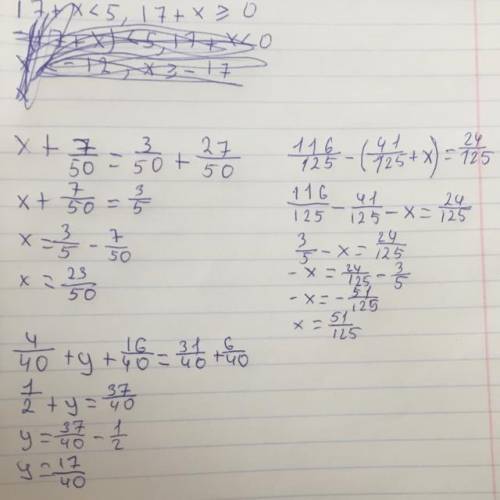 17+x<5, 17+x≥0
x + 7/50 = 3/50 + 27/50
x + 7/50 = 3/5
x = 3/5 - 7/50
x = 23/50
116/125 - (41/125 + x) = 24/125
116/125 - 41/125 - x = 24/125
3/5 - x = 24/125
-x = 24/125 - 3/5
-x = -51/125
x = 51/125
4/40 + y + 16/40 = 31/40 + 6/40
1/2 + y = 37/40
y = 37/40 - 1/2
y = 17/40